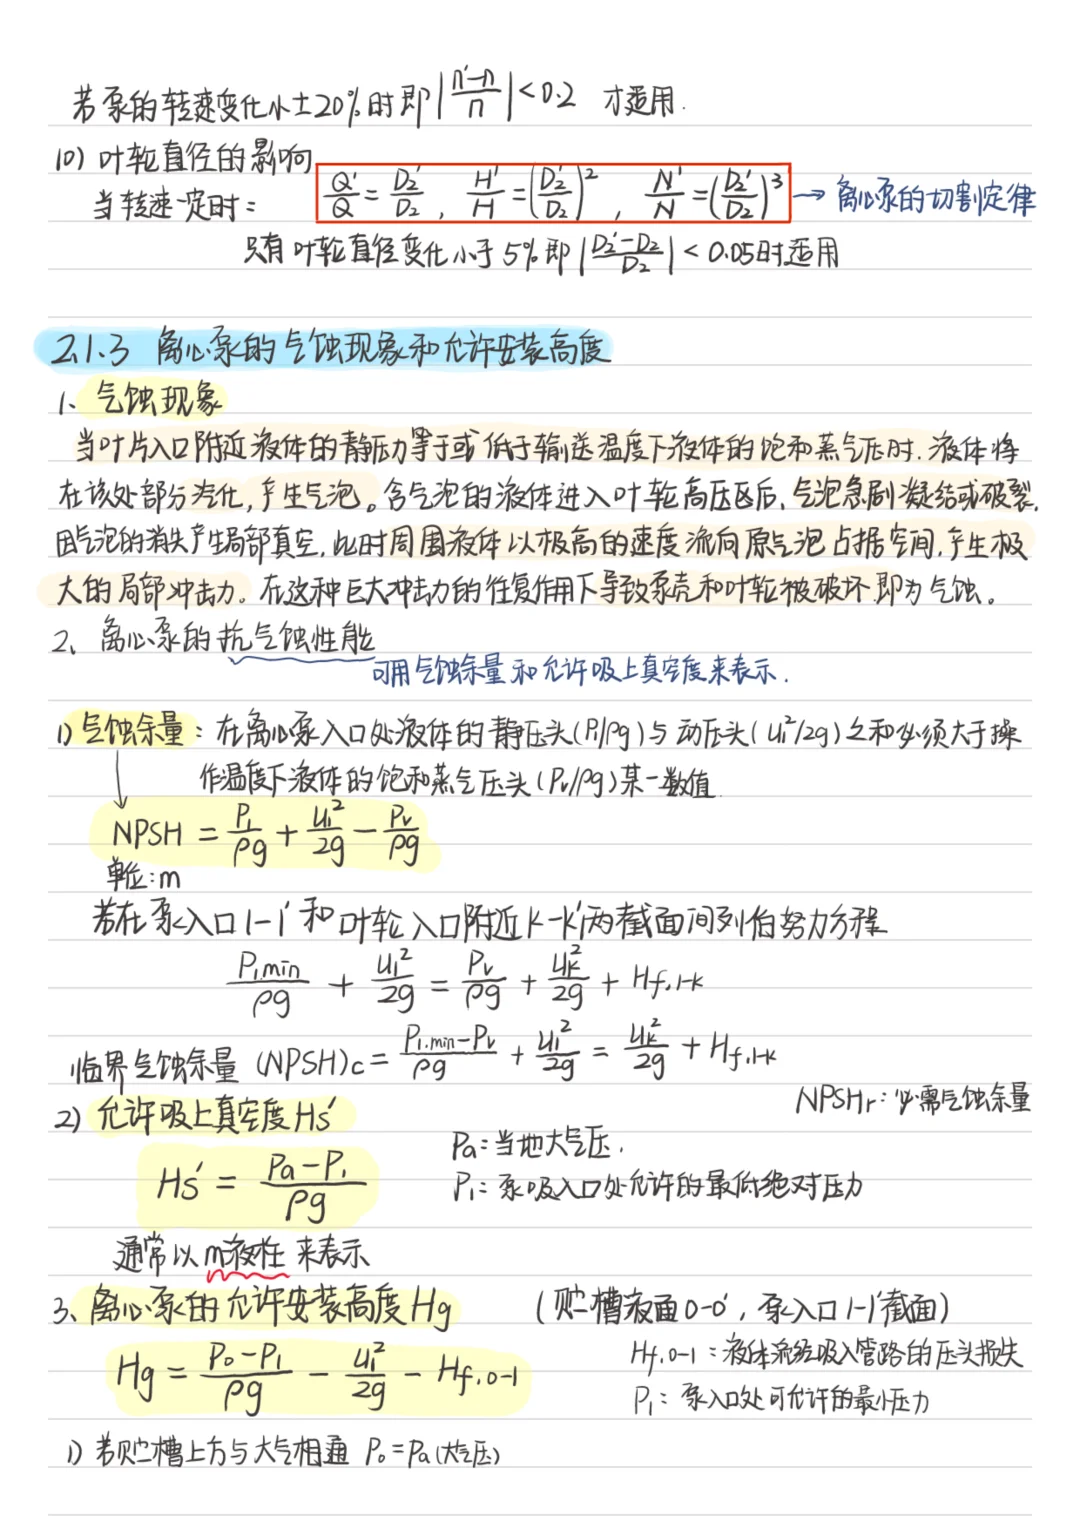 若泵的转速变化小±20%时即|n'-n/n|<0.2 才适用.
10) 叶轮直径的影响
当转速一定时: Q'/Q = D₂'/D₂, H'/H = (D₂'/D₂)², N'/N = (D₂'/D₂)³ → 离心泵的切割定律
只有叶轮直径变化小于5%即|D₂'-D₂/D₂|<0.05时适用
2.1.3 离心泵的气蚀现象和允许安装高度
1、气蚀现象
当叶片入口附近液体的静压力等于或低于输送温度下液体的饱和蒸气压时.液体将
在该处部分汽化,产生气泡。含气泡的液体进入叶轮高压区后,气泡急剧凝结或破裂.
因气泡的消失产生局部真空,此时周围液体以极高的速度流向原气泡占据空间,产生极
大的局部冲击力。在这种巨大冲击力的往复作用下导致泵壳和叶轮被破坏.即为气蚀。
2、离心泵的抗气蚀性能
可用气蚀余量和允许吸上真空度来表示.
1) 气蚀余量: 在离心泵入口处液体的静压头(P₁/ρg)与动压头(u₁²/2g)之和必须大于操
作温度下液体的饱和蒸气压头(Pv/ρg)某一数值.
NPSH = P₁/ρg + u₁²/2g - Pv/ρg
单位:m
若在泵入口1-1'和叶轮入口附近k-k'两截面间列伯努力方程
P₁.min/ρg + u₁²/2g = Pv/ρg + uk²/2g + Hf,1-k
临界气蚀余量 (NPSH)c = P₁.min-Pv/ρg + u₁²/2g = uk²/2g + Hf,1-k
NPSHr: 必需气蚀余量
2) 允许吸上真空度Hs'
Hs' = Pa-P₁/ρg
Pa: 当地大气压.
P₁: 泵吸入口处允许的最低绝对压力
通常以m液柱来表示
3、离心泵的允许安装高度Hg (贮槽液面0-0', 泵入口1-1'截面)
Hg = P₀-P₁/ρg - u₁²/2g - Hf,0-1
Hf,0-1: 液体流经吸入管路的压头损失
P₁: 泵入口处可允许的最小压力
1) 若贮槽上方与大气相通 P₀=Pa(大气压)